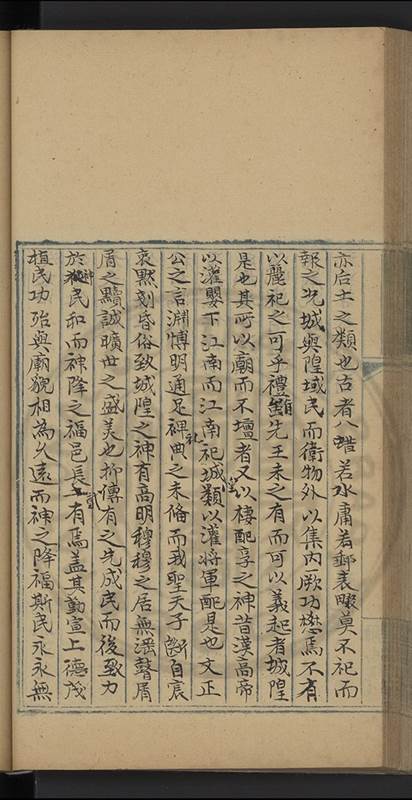 亦后土之類也古者八蜡若水庸若郵表畷莫不祀而
報之况城與隍域民而衛物外以集内厥功懋焉不有
以麗祀之可乎禮雖先王未之有而可以義起者城隍
是也其所以廟而不壇者又以棲配享之神昔漢高帝
以灌嬰下江南而江南祀城隍類以灌將軍配是也文正
公之言淵博明通足裨祀典之未備而我聖天子斷自宸
衷默刻昏俗致城隍之神有高明穆穆之居無潘聲屑
屑之黷誠曠世之盛美也抑傳有之先成民而後致力
於神民和而神降之福邑長吏有焉蓋其勤宣上德茂
植民功殆與廟貌相為久遠而神之降福斯民永永無